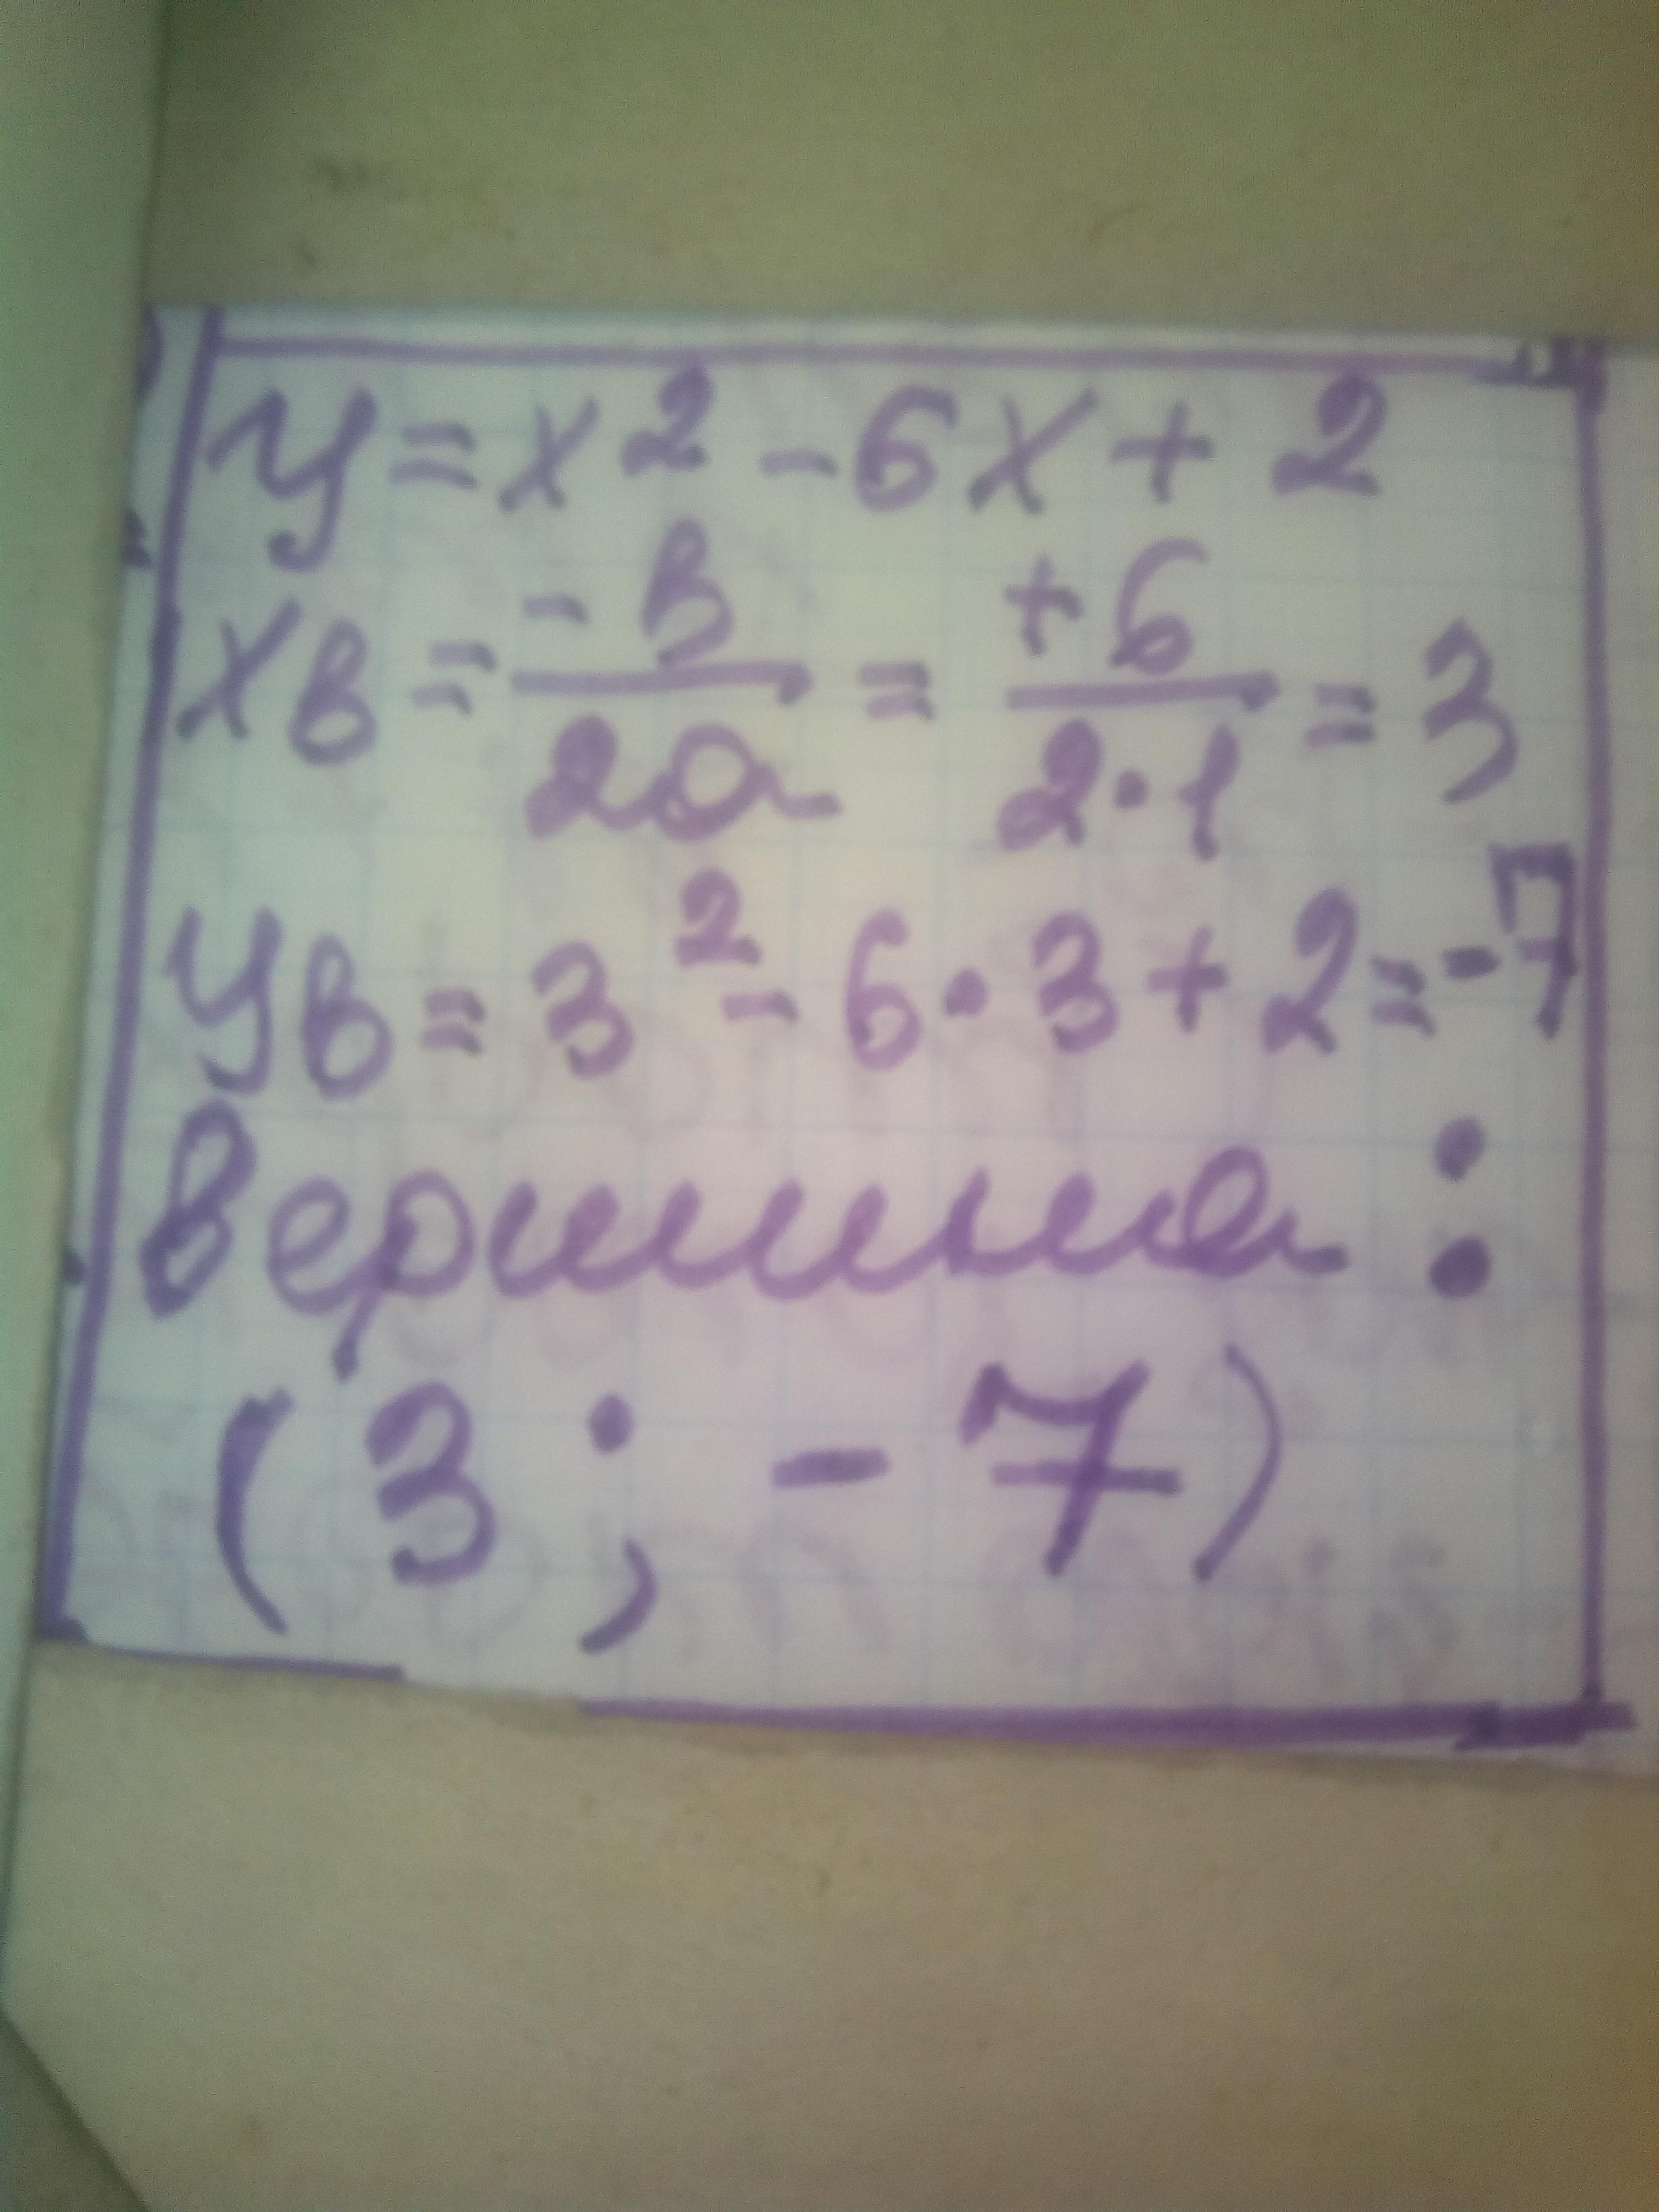 y = x² - 6x + 2
xв = -в/2a = +6/2·1 = 3
yв = 3² - 6·3 + 2 = -7
вершина :
(3 ; -7)